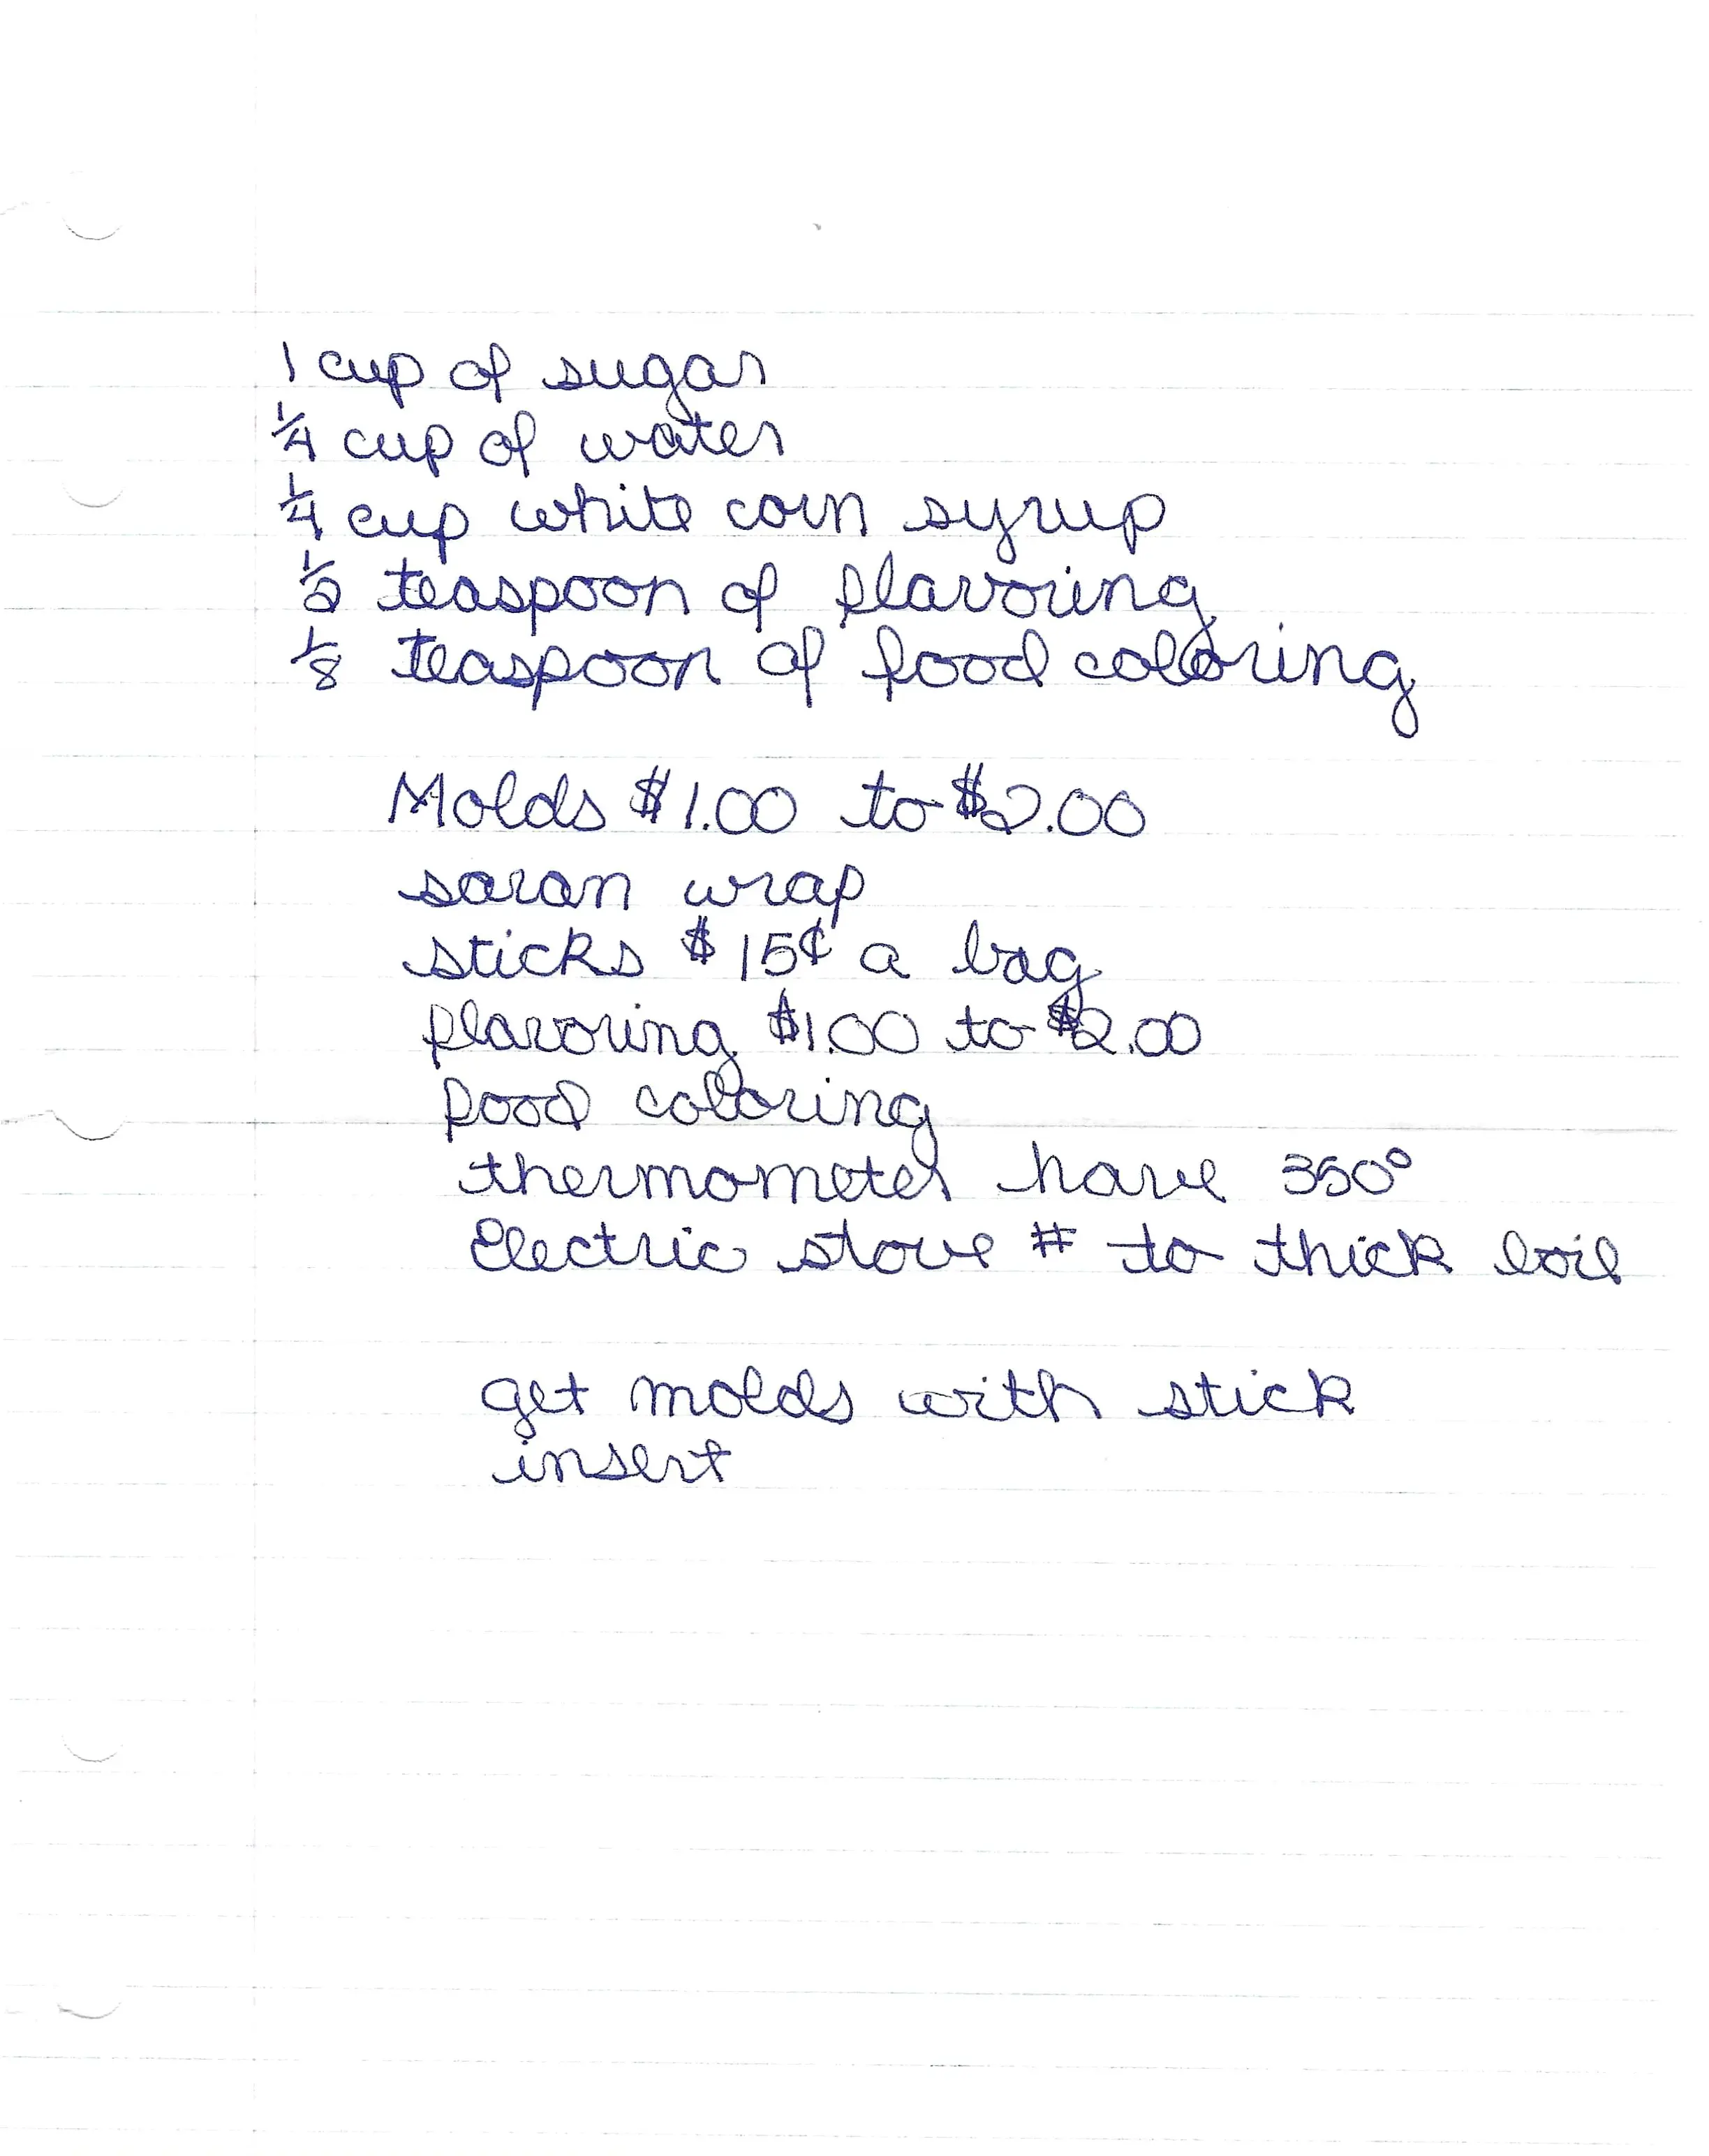 1 cup of sugar
1/4 cup of water
1/4 cup white corn syrup
1/2 teaspoon of flavoring
1/8 teaspoon of food coloring
Molds $1.00 to $2.00
saran wrap
sticks $ 15¢ a bag
flavoring $1.00 to $2.00
food coloring
thermometer have 350°
Electric stove # to thick boil
get molds with stick
insert